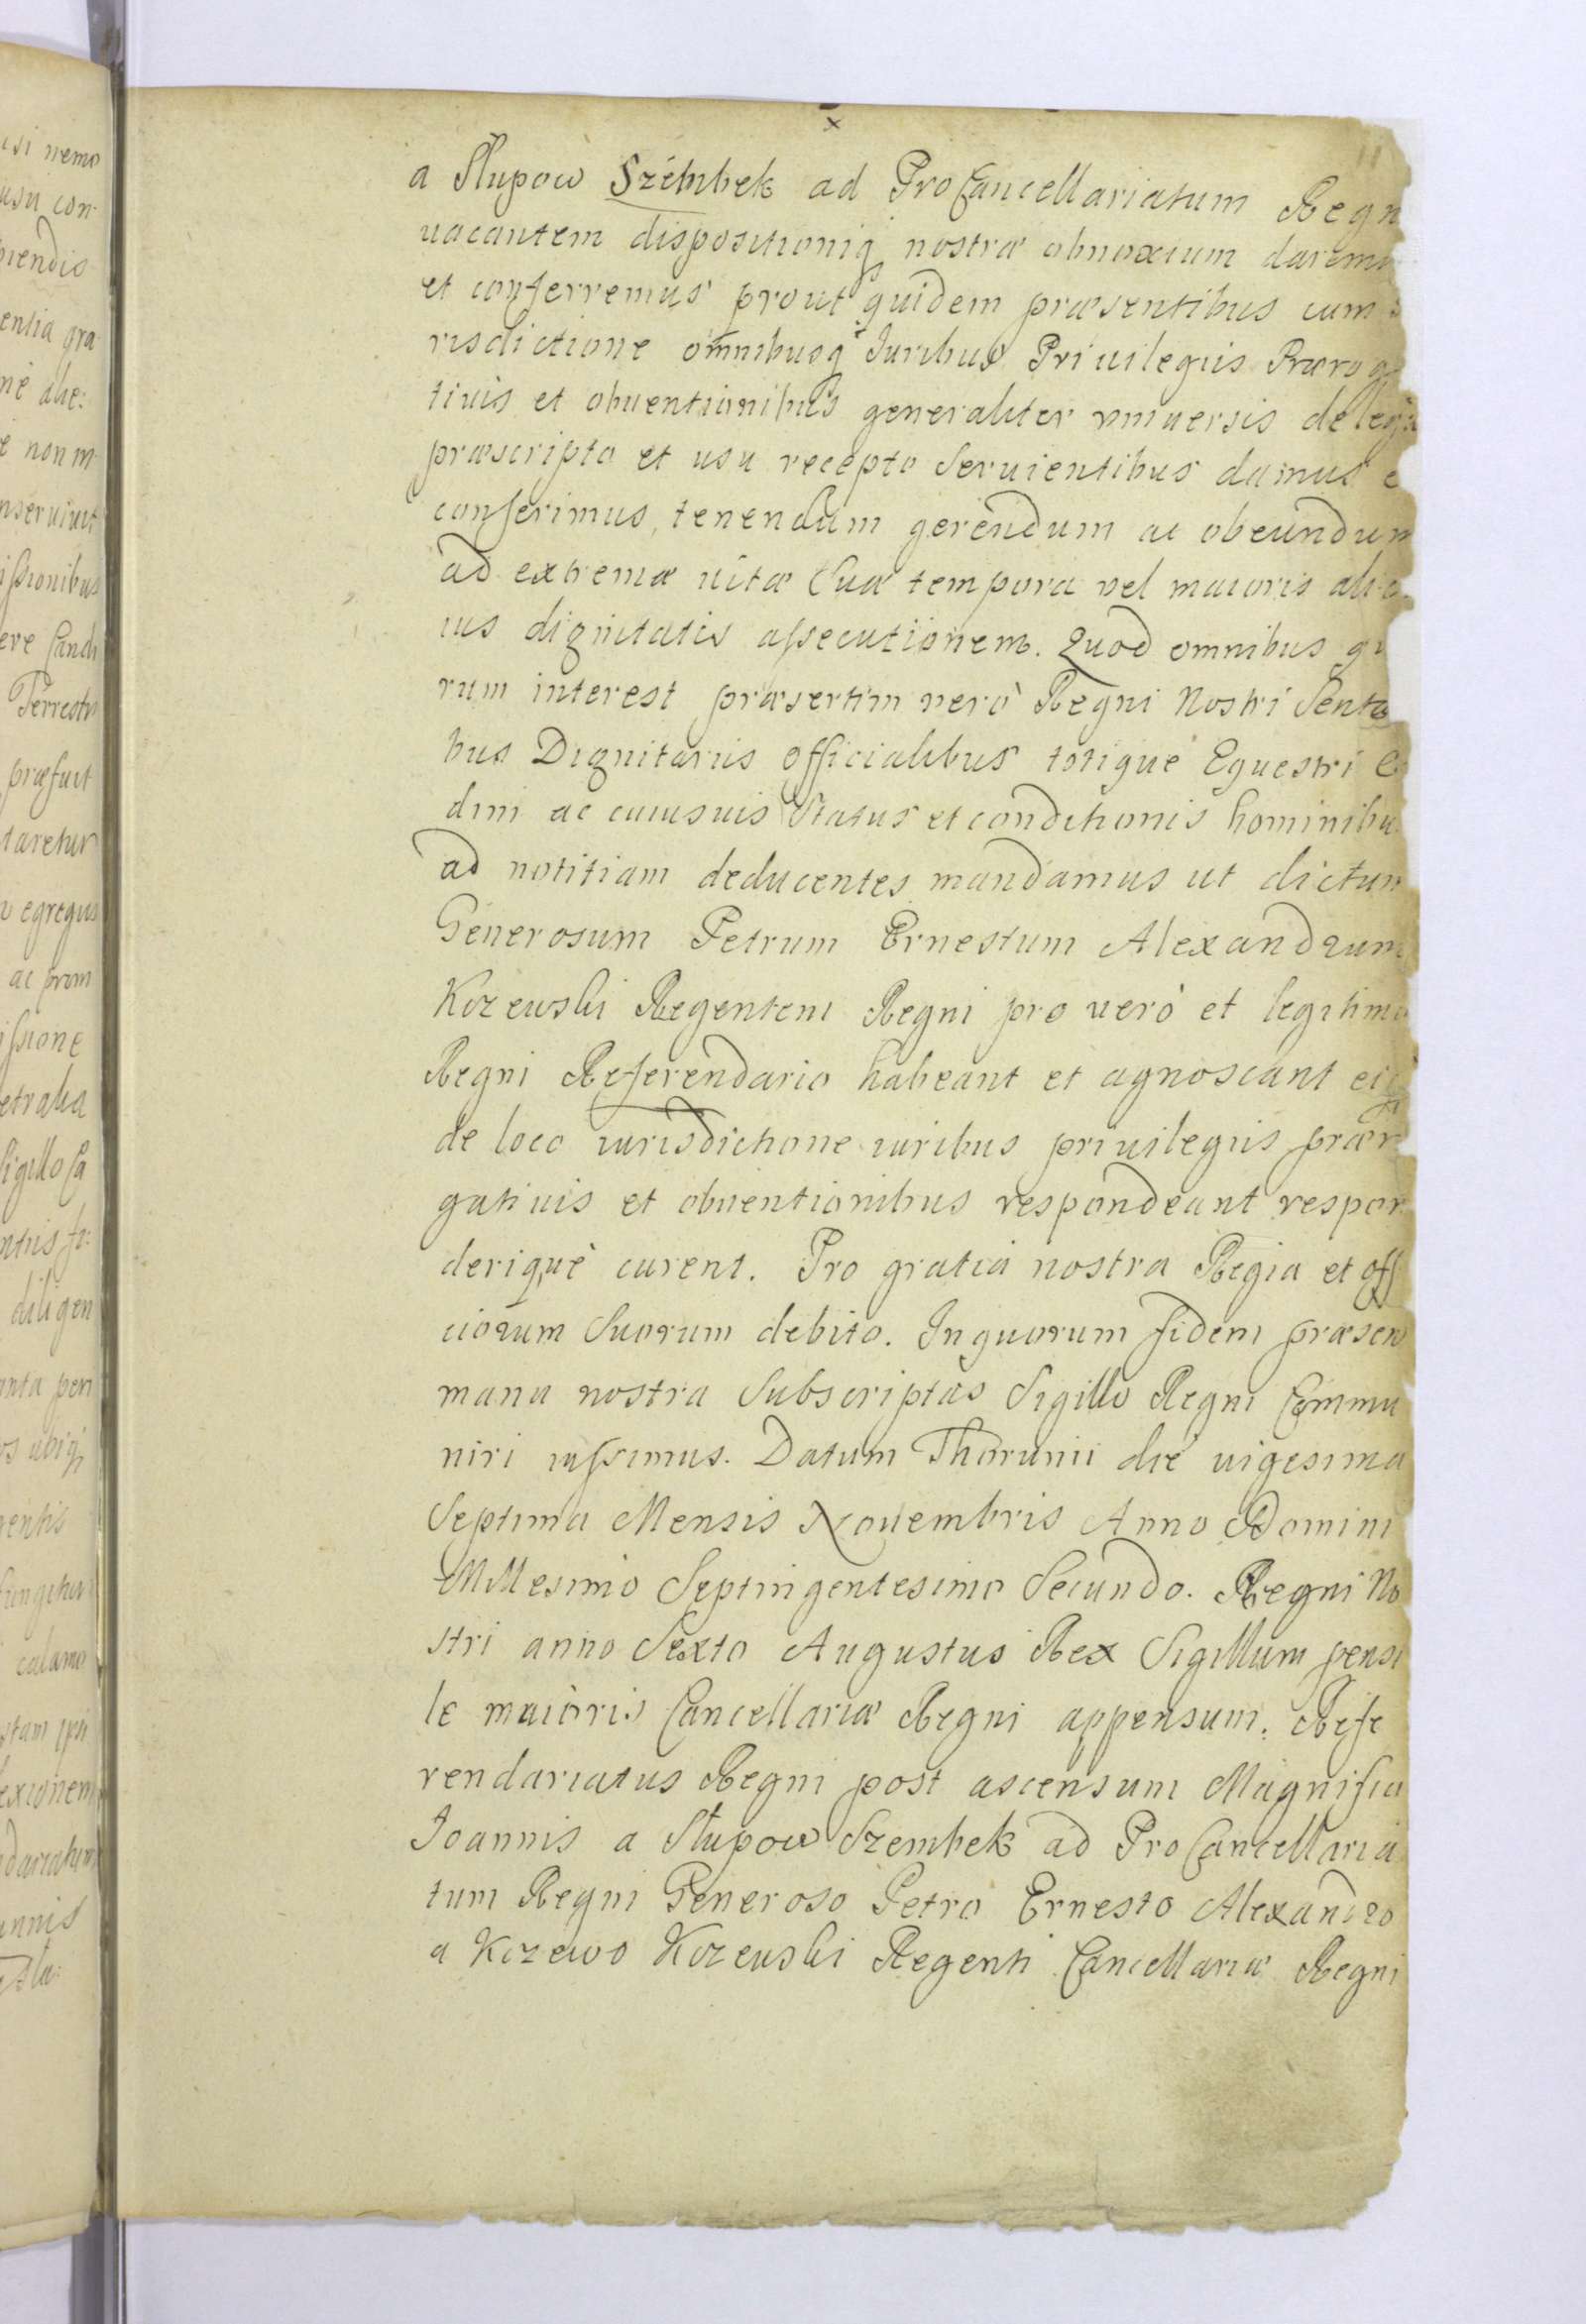 a Słupow Szembek ad ProCancellariatum Regn
uacantem dispositioniq nostræ obnoxium darem
et conferremus prout quidem præsentibus cum
risdictione omnibusq Iuribus Priuilegiis Prærog
tiuis et obuentionibus generaliter vniuersis de leg
præscripto et usu recepto seruientibus damus e
conferimus, tenendum gerendum ac obeundum
ad extremæ uitæ suæ tempora vel maioris alic
ius dignitatis assecutionem. Quod omnibus qu
rum interest præsertim verò Regni Nostri Sento
bus Dignitariis officialibus totique Equestri
dini ac cuiusuis Status et conditionis hominibu
ad notitiam deducentes mandamus ut dictum
Generosum Petrum Ernestum Alexandrum
Kczewski Regentem Regni pro uerò et legitimo
Regni Referendario habeant et agnoscant ei
de loco iurisdictione iuribus priuilegiis prær
gatiuis et obuentionibus respondeant respon
deriquè curent. Pro gratia nostra Regia et offi
ciorum suorum debito. In quorum fidem præsen
manu nostra subscriptas Sigillo Regni Commu
niri iussimus. Datum Thorunii die uigesima
Septima Mensis Nouembris Anno Domini
Millesimo Septingentesimo Secundo. Regni No
stri anno Sexto Augustus Rex Sigillum pensi
le maioris Cancellariæ Regni appensum. Refe
rendariatus Regni post ascensum Magnifici
Ioannis a Słupow Szembek ad ProCancellaria
tum Regni Generoso Petro Ernesto Alexandro
a Kczewo Kczewski Regenti Cancellariæ Regni